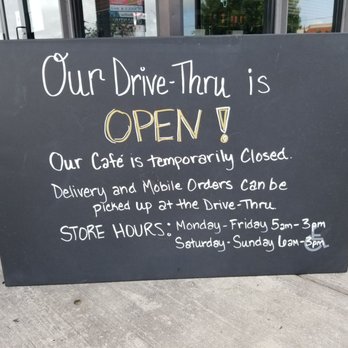 Our Drive-Thru is
OPEN!
Our Café is temporarily Closed.
Delivery and Mobile Orders can be
picked up at the Drive-Thru
STORE HOURS: Monday-Friday 5am-3pm
Saturday-Sunday 6am-3pm